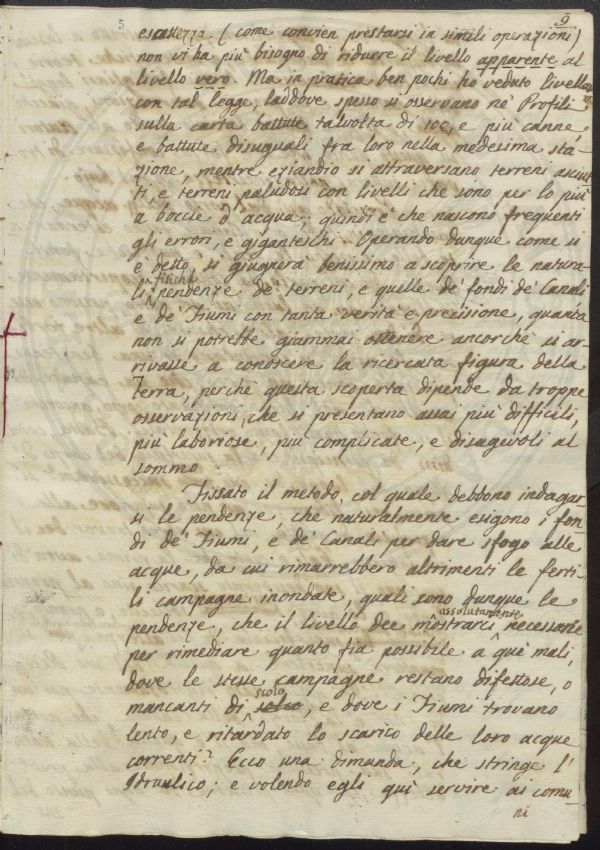 5
9
esattezza (come convien prestarsi in simili operazioni)
non vi ha più bisogno di ridurre il livello apparente al
livello vero. Ma in pratica ben pochi ho veduto livellar
con tal legge, laddove spesso si osservano ne' Profili
sulla carta battute talvolta di 100, e più canne
e battute disuguali fra loro nella medesima sta-
zione, mentre eziandio si attraversano terreni asciut-
ti, e terreni paludosi con livelli che sono per lo più
a boccie d'acqua; quindi è che nascono frequenti
gli errori, e giganteschi. Operando dunque come si
è detto, si giugnerà benissimo a scoprire le natura-
li pendenze de' terreni, e quelle de' fondi de' Canali
e de' Fiumi con tanta verità e precisione, quanta
non si potrebbe giammai ottenere ancorchè si ar-
rivasse a conoscere la ricercata figura della
Terra, perchè questa scoperta dipende da troppe
osservazioni, che si presentano assai più difficili,
più laboriose, più complicate, e disagevoli al
sommo.
Fissato il metodo, col quale debbono indagar-
si le pendenze, che naturalmente esigono i fon-
di de' Fiumi, e de' Canali per dare sfogo alle
acque, da cui rimarrebbero altrimenti le ferti-
li campagne inondate, quali sono dunque le
pendenze, che il livello dee mostrarci assolutamente necessarie
per rimediare quanto fia possibile a que' mali,
dove le stesse campagne restano difettose, o
mancanti di scolo, e dove i Fiumi trovano
lento, e ritardato lo scarico delle loro acque
correnti? Ecco una dimanda, che stringe l'
Idraulico; e volendo egli quì servire ai comu-
ni